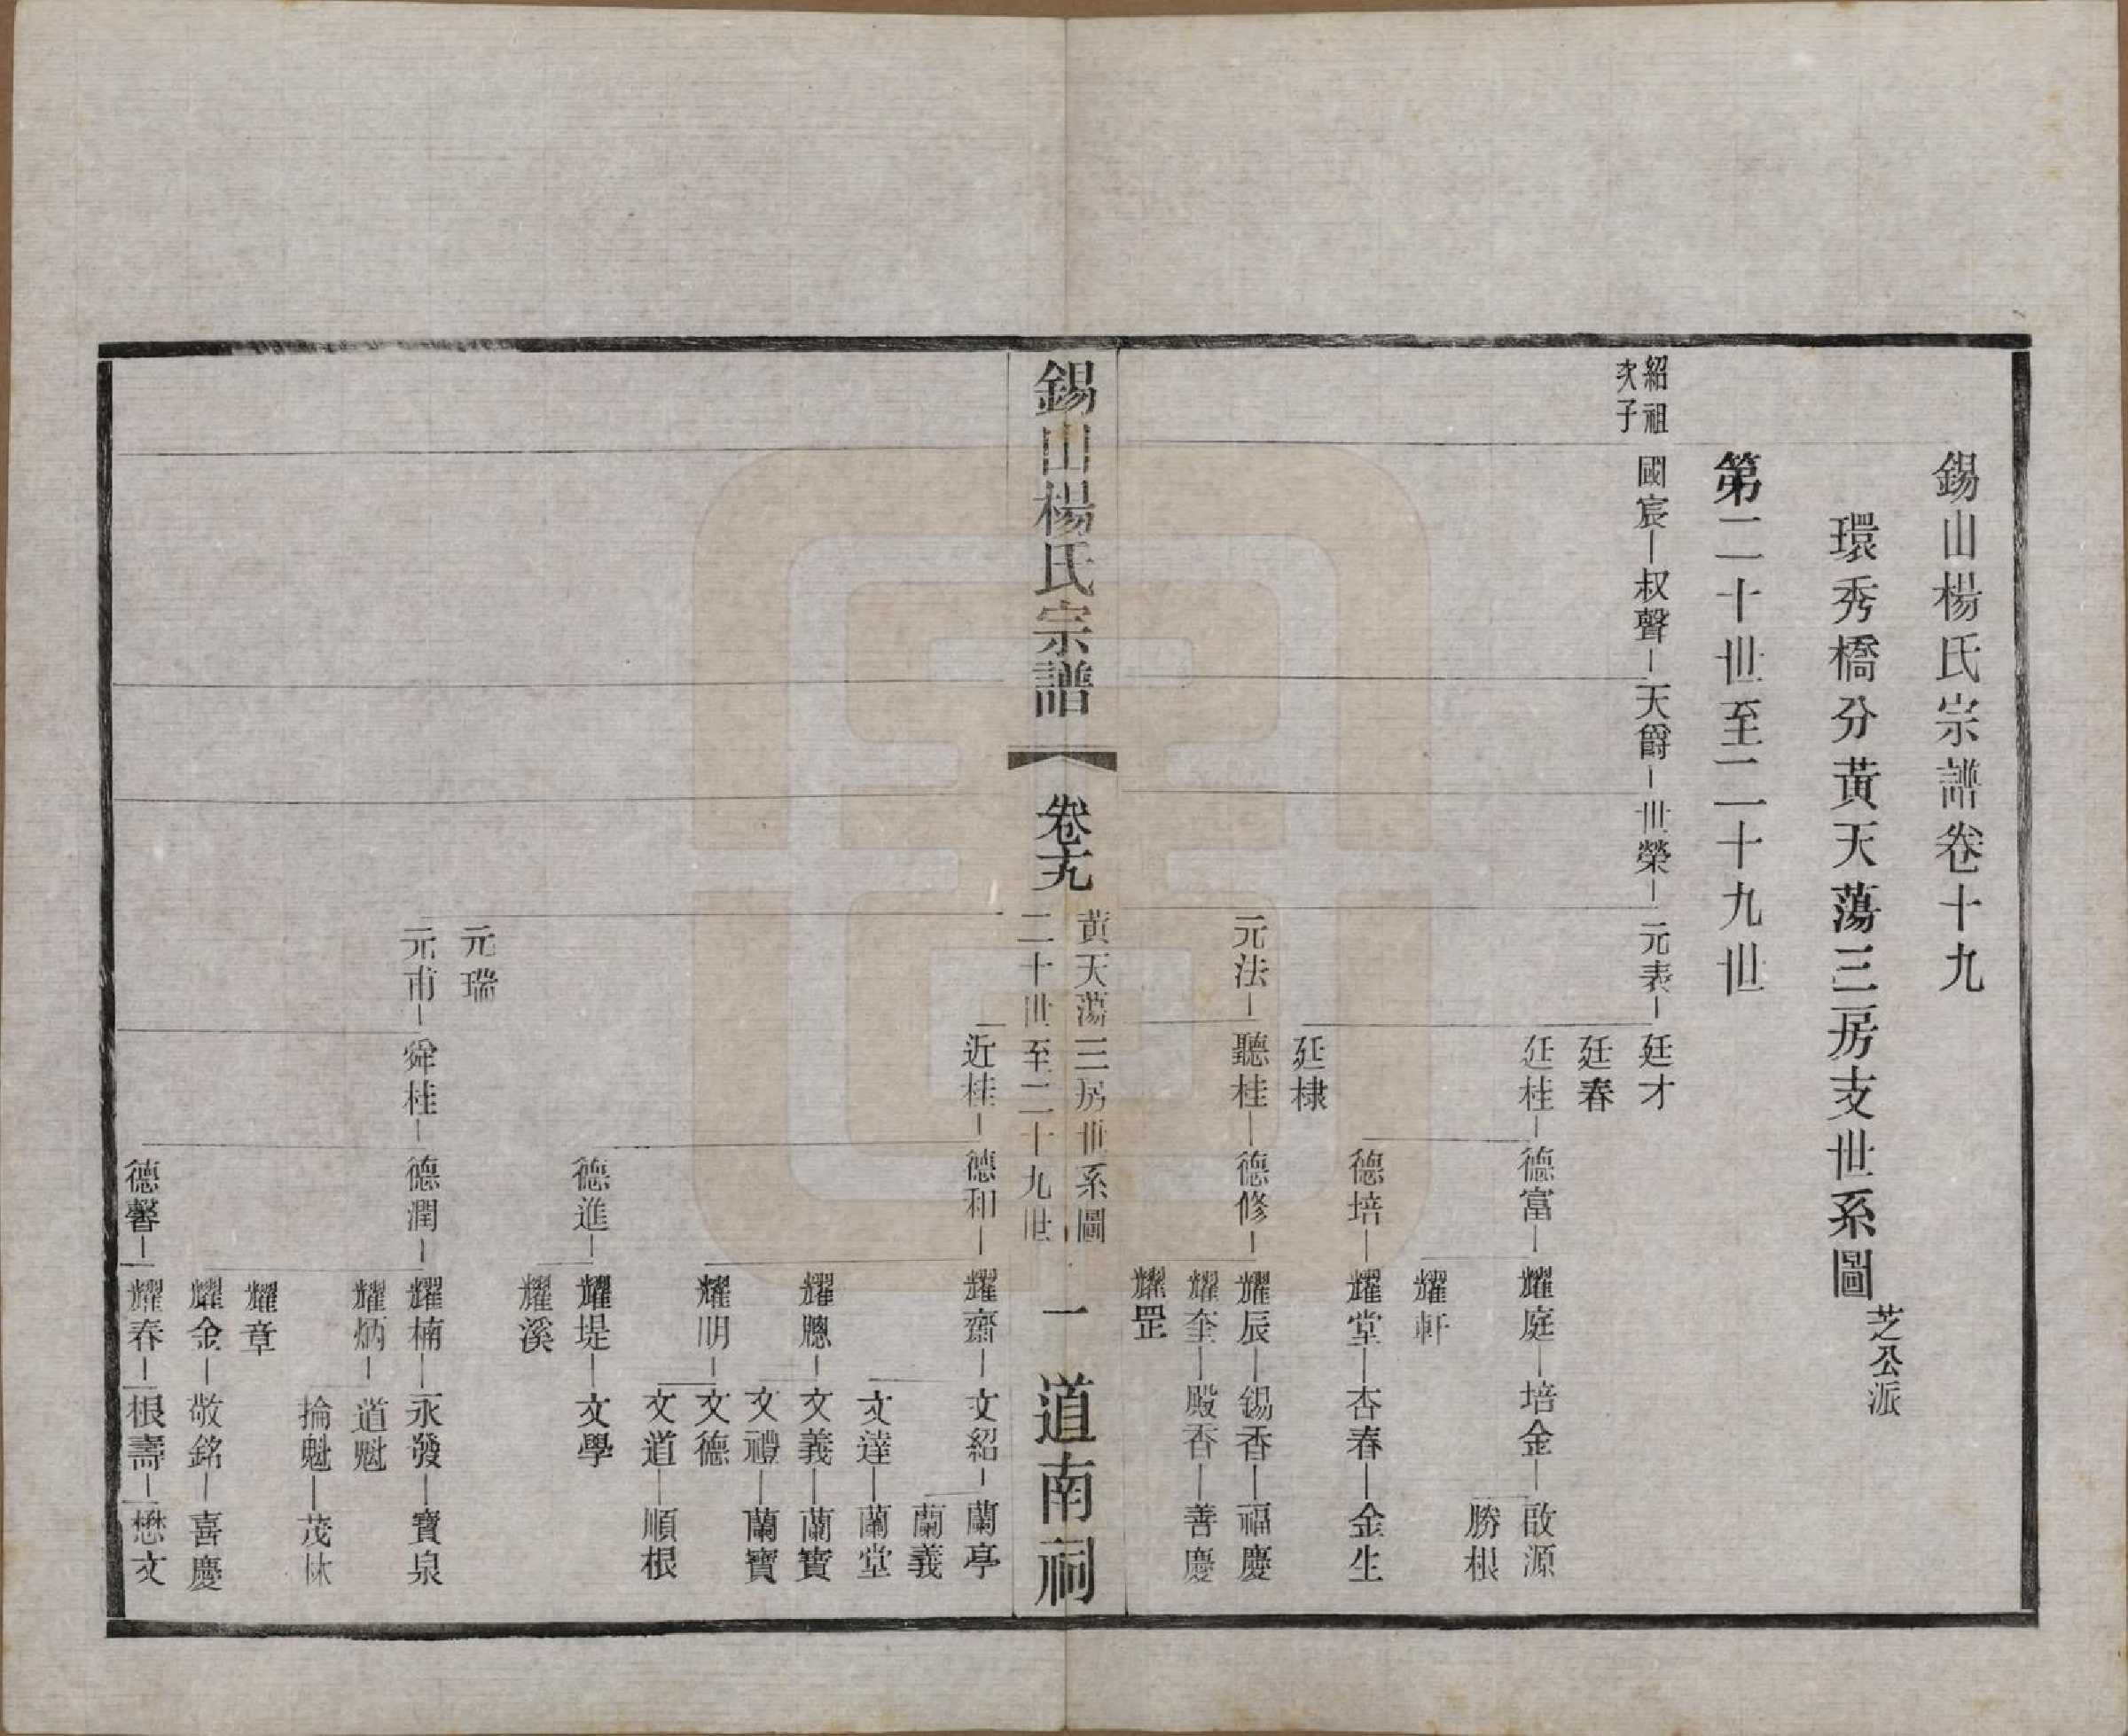 錫山楊氏宗譜卷十九
環秀橋分黃天蕩三房支世系圖
芝公派
第二十世至二十九世
紹祖
次子
國宸 叔聲 天爵 世榮 元表 廷才
廷春
廷桂 德富 耀庭 培金 啟源
勝根
耀軒
德培 耀堂 杏春 金生
廷棣
元法 聽桂 德修 耀辰 錫香 福慶
耀奎 殿香 善慶
耀罡
錫山楊氏宗譜
卷十九
黃天蕩三房世系圖
二十世至二十九世
一
道南祠
近桂 德和 耀齋 文紹 蘭亭
蘭義
文達 蘭堂
耀聰 文義 蘭寶
文禮 蘭寶
耀明 文德
文道 順根
德進 耀堤 文學
耀溪
元瑞
元甫 舜桂 德潤 耀楠 永發 寶泉
耀炳 道魁
掄魁 茂林
耀章
耀金 敬銘 喜慶
德馨 耀春 根壽 懋文